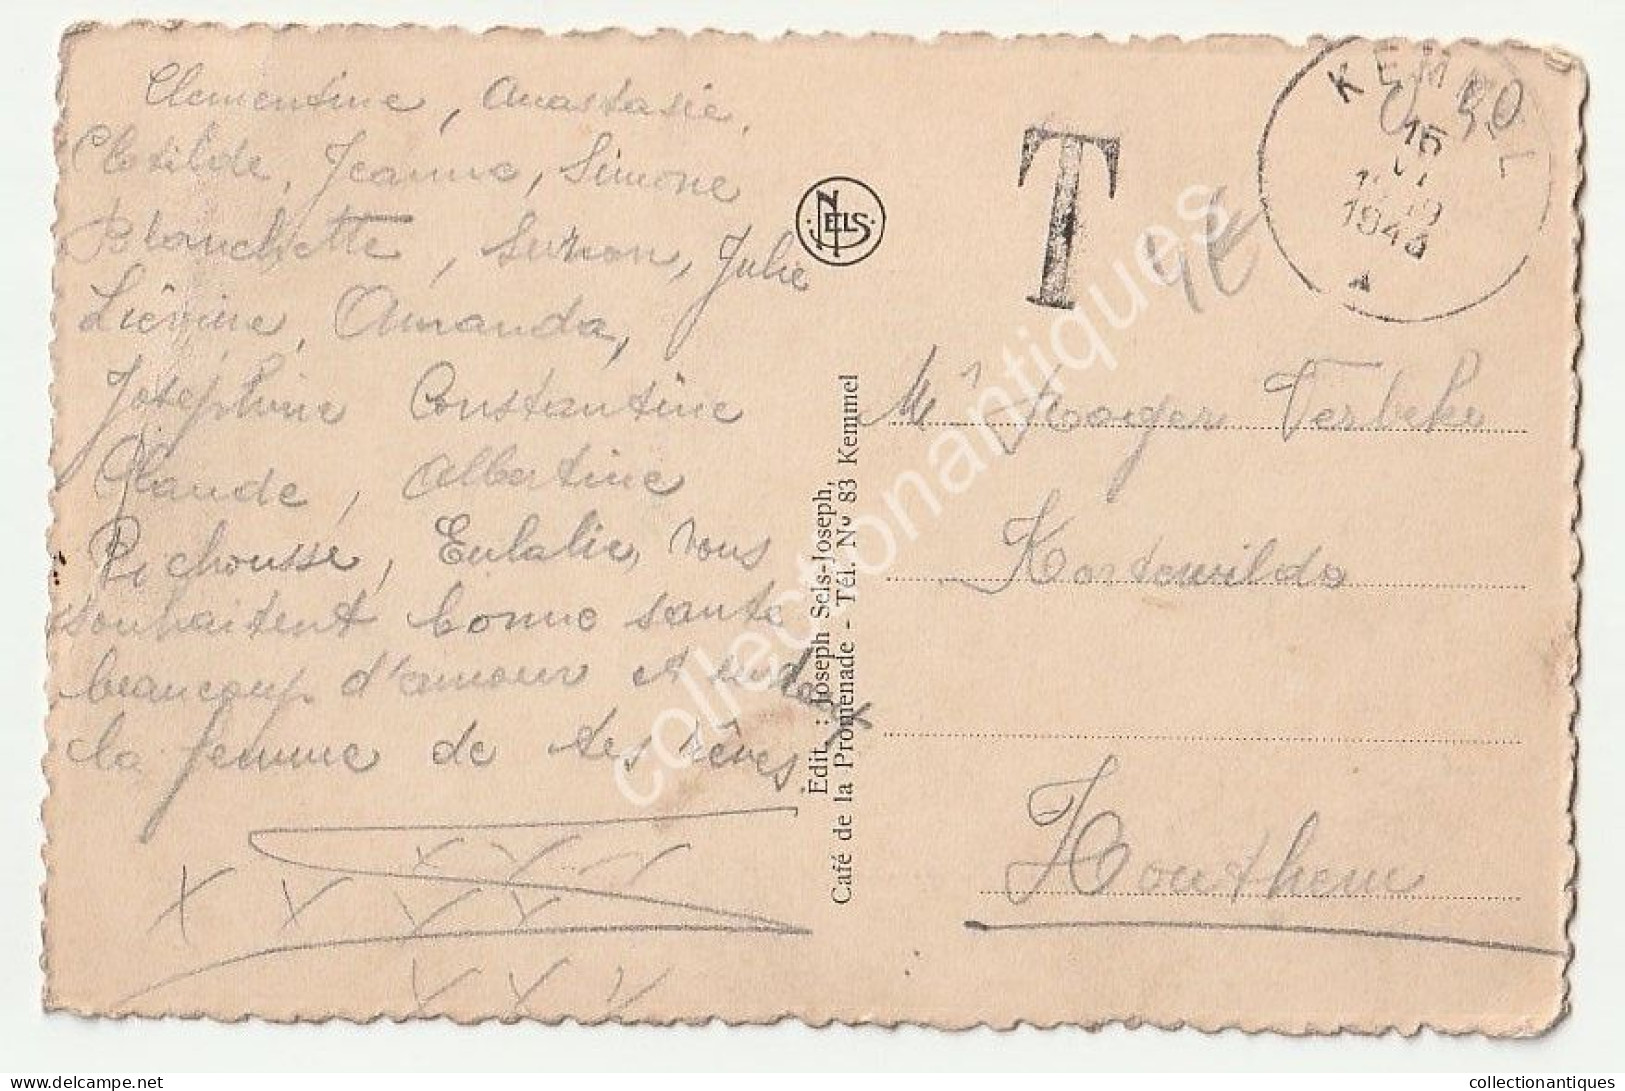 Clementine, Anastasie,
Clotilde, Jeanne, Simone
Blanchette, Suzon, Julie
Liévine, Amanda,
Josephine Constantine
Claude, Albertine
Pichousse, Eulalie, vous
souhaitent bonne santé
beaucoup d'amour et surtout
la femme de tes rêves.
X X X X X X X
X X X
NELS
Edit. : Joseph Sels-Joseph,
Café de la Promenade - Tél. No 83 Kemmel
T
KEMMEL
0.50
15
VI
1943
Mr Roger Verbeke
Kortewilde
Houthem
collectionantiques
collectionantiques